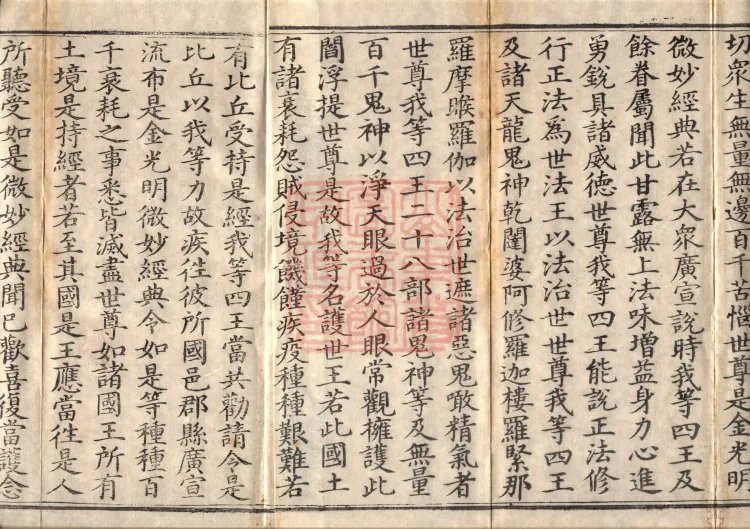 切衆生無量無邊百千苦惱世尊是金光明
微妙經典若在大衆廣宣說時我等四王及
餘眷屬聞此甘露無上法味增益身力心進
勇銳具諸威德世尊我等四王能說正法修
行正法爲世法王以法治世世尊我等四王
及諸天龍鬼神乾闥婆阿修羅迦樓羅緊那
羅摩睺羅伽以法治世遮諸惡鬼噉精氣者
世尊我等四王二十八部諸鬼神等及無量
百千鬼神以淨天眼過於人眼常觀擁護此
閻浮提世尊是故我等名護世王若此國土
有諸衰耗怨賊侵境饑饉疾疫種種艱難若
有比丘受持是經我等四王當共勸請令是
比丘以我等力故疾徃彼所國邑郡縣廣宣
流布是金光明微妙經典令如是等種種百
千衰耗之事悉皆滅盡世尊如諸國王所有
土境是持經者若至其國是王應當徃是人
所聽受如是微妙經典聞已歡喜復當護念